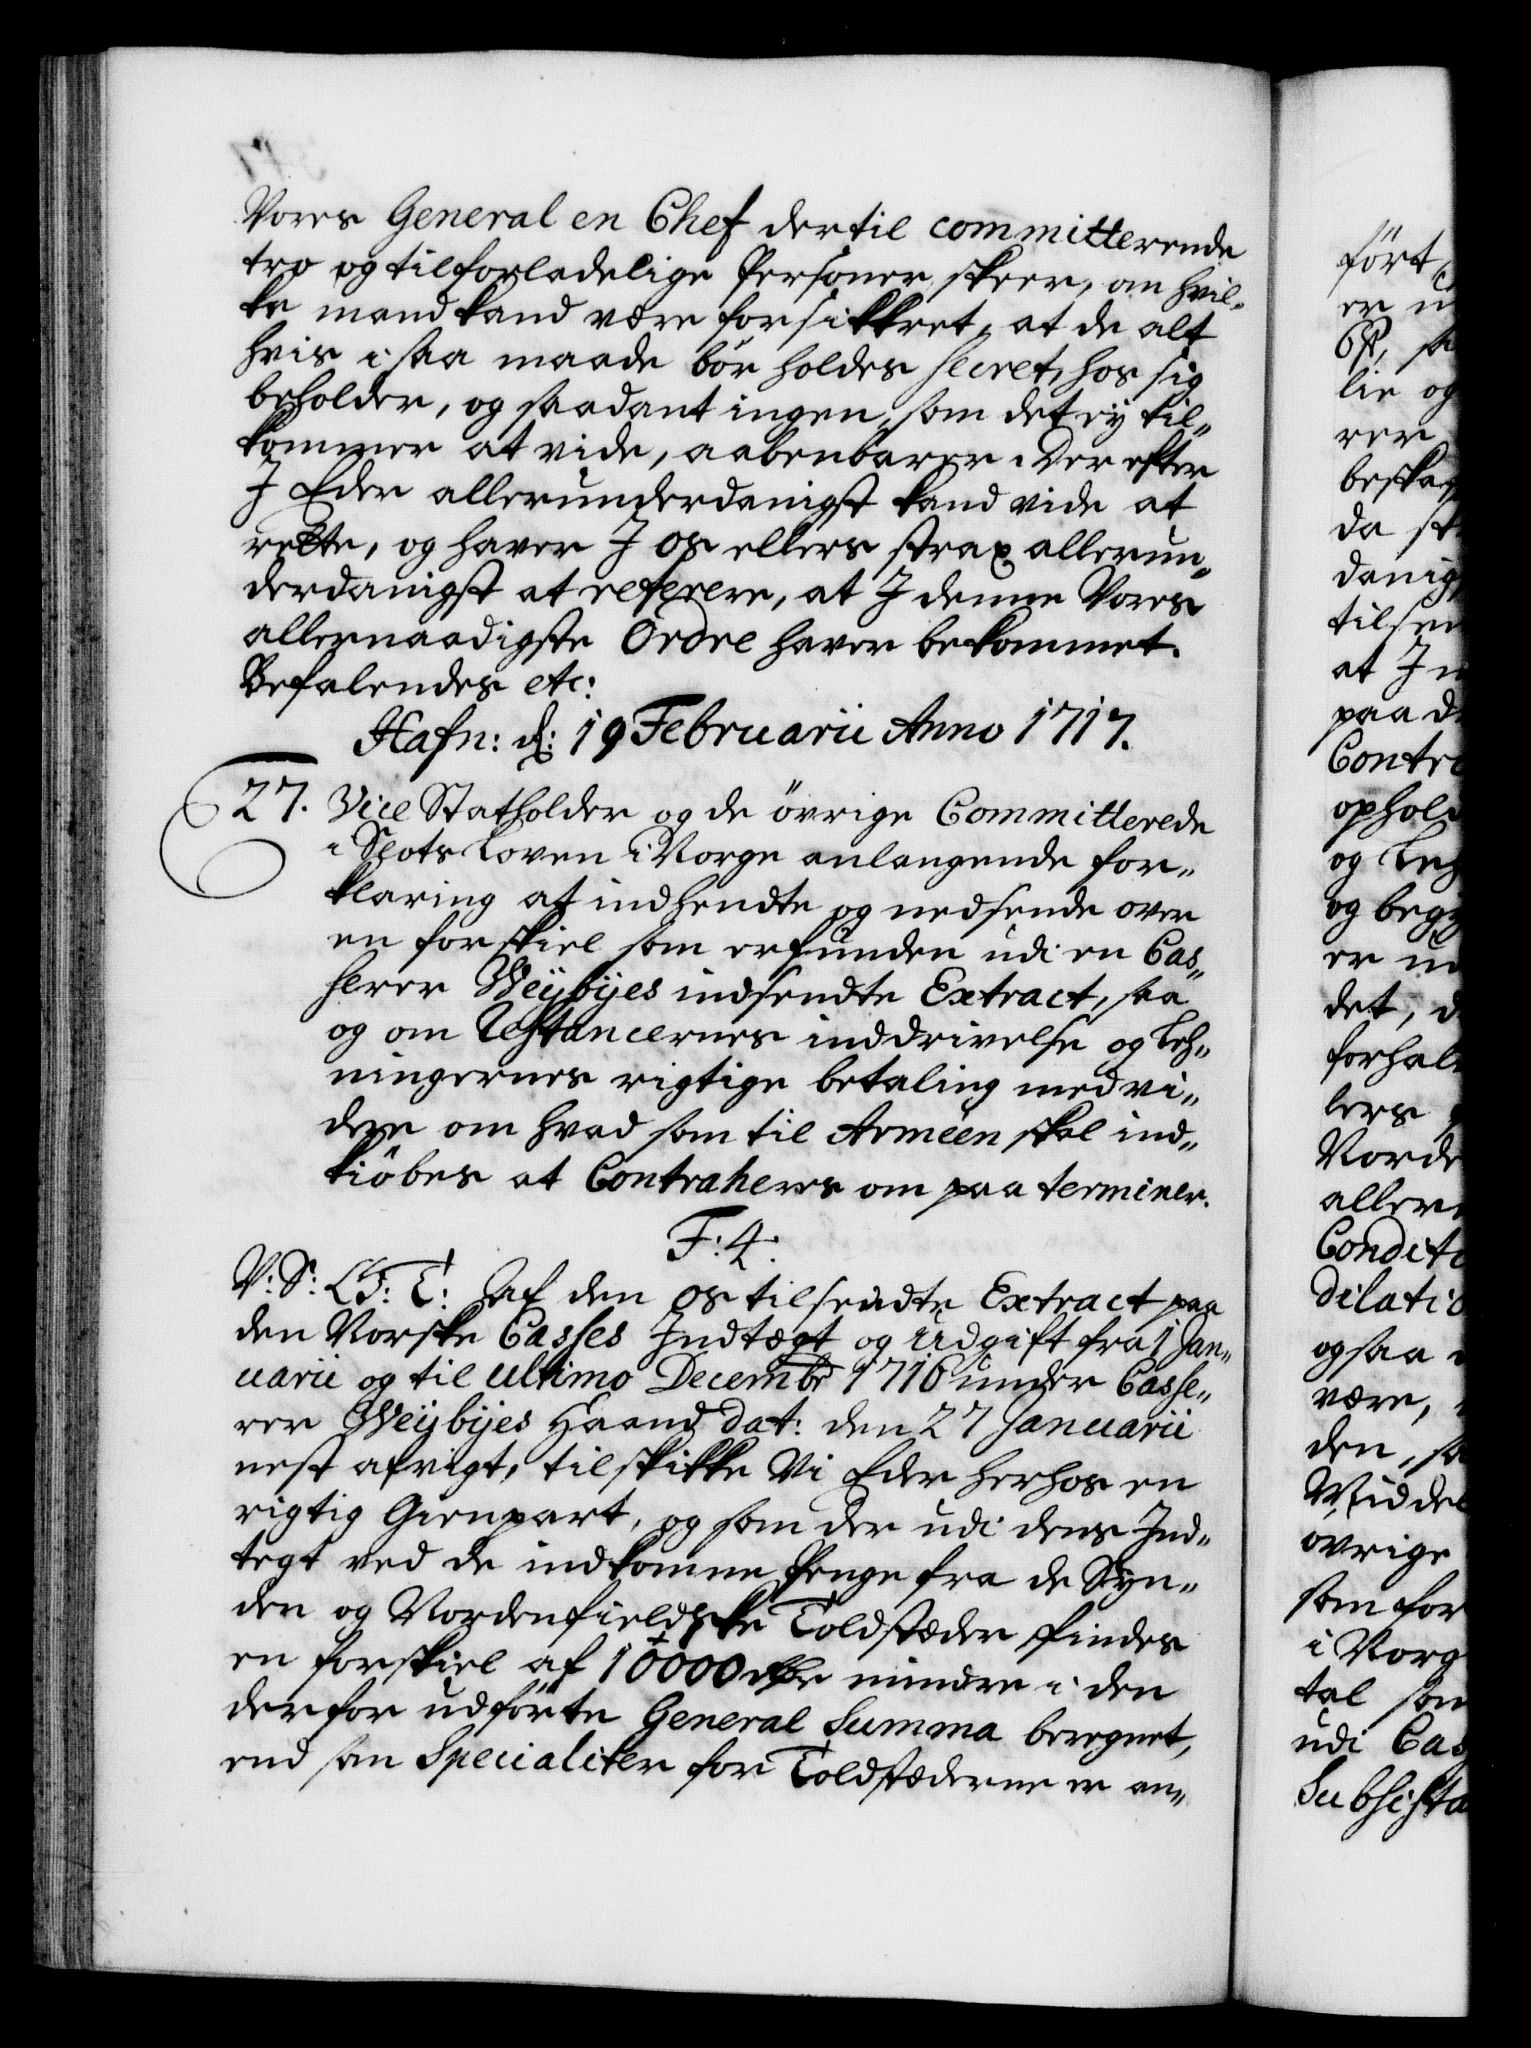 Vores General en Chef dertil committerende
tro og tilforladelige Personer skeer, om hvil-
ke mand kand være forsikkret, at de alt
hvis i saa maade bör holdes secret, hos sig
beholder, og saadant ingen, som det ey til„
kommer at vide, aabenbarer. Der efter
I Eder allerunderdanigst kand vide at
rette, og haver I os ellers strax allerun„
derdanigst at referere, at I denne Vores
allernaadigste Ordre haver bekommet.
Befalendes etc:
Hafn: d: 19 Februarii Anno 1717.
27. Vice Statholder og de övrige Committerede
i Slots Loven i Norge anlangende for„
klaring at indhendte og nedsende over
en forskiel som erfunden udi en Cas„
serer Weybyes indsendte Extract, saa
og om Restancernes inddrivelse og Leh„
ningernes rigtige betaling med vi„
dere om hvad som til Arméen skal ind„
kiöbes at Contraheres om paa terminer.
F: 4.
V: S: G: T: Af den os tilsendte Extract paa
den Norske Casses Indtægt og Udgift fra 1 Jan„
uarii og til ultimo Decembr 1716 under Casse„
rer Weybyes Haand dat: den 27 Januarii
nest afvigt, tilskikke Vi Eder herhos en
rigtig Gienpart, og som der udi dens Ind„
tegt ved de indkomne Penge fra de Syn„
den og Nordenfieldske Toldstæder findes
en forskiel af 10000 rdr mindre i den
derfor udförte General Summa beregnet,
end som Specialiter for Toldstæderne er an„
fört,
lie og
rer
danig
at I
paa
Contra
ophol
og
og beg
er
det, d
Norde
aller
Condit
dilatio
og saa
være,
den, sa
Middel
övrige
som for
i Norg
tal som
udi Cas
Subsista